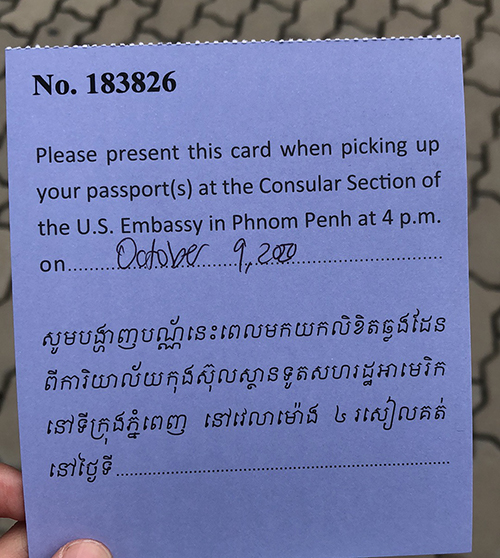 No. 183826
Please present this card when picking up
your passport(s) at the Consular Section of
the U.S. Embassy in Phnom Penh at 4 p.m.
on......October 9, 200......
សូមបង្ហាញបណ្ណ័នេះពេលមកយកលិខិតឆ្លងដែន
ពីការិយាល័យកុងស៊ុលស្ថានទូតសហរដ្ឋអាមេរិក
នៅទីក្រុងភ្នំពេញ នៅវេលាម៉ោង ៤ រសៀលគត់
នៅថ្ងៃទី............................................................